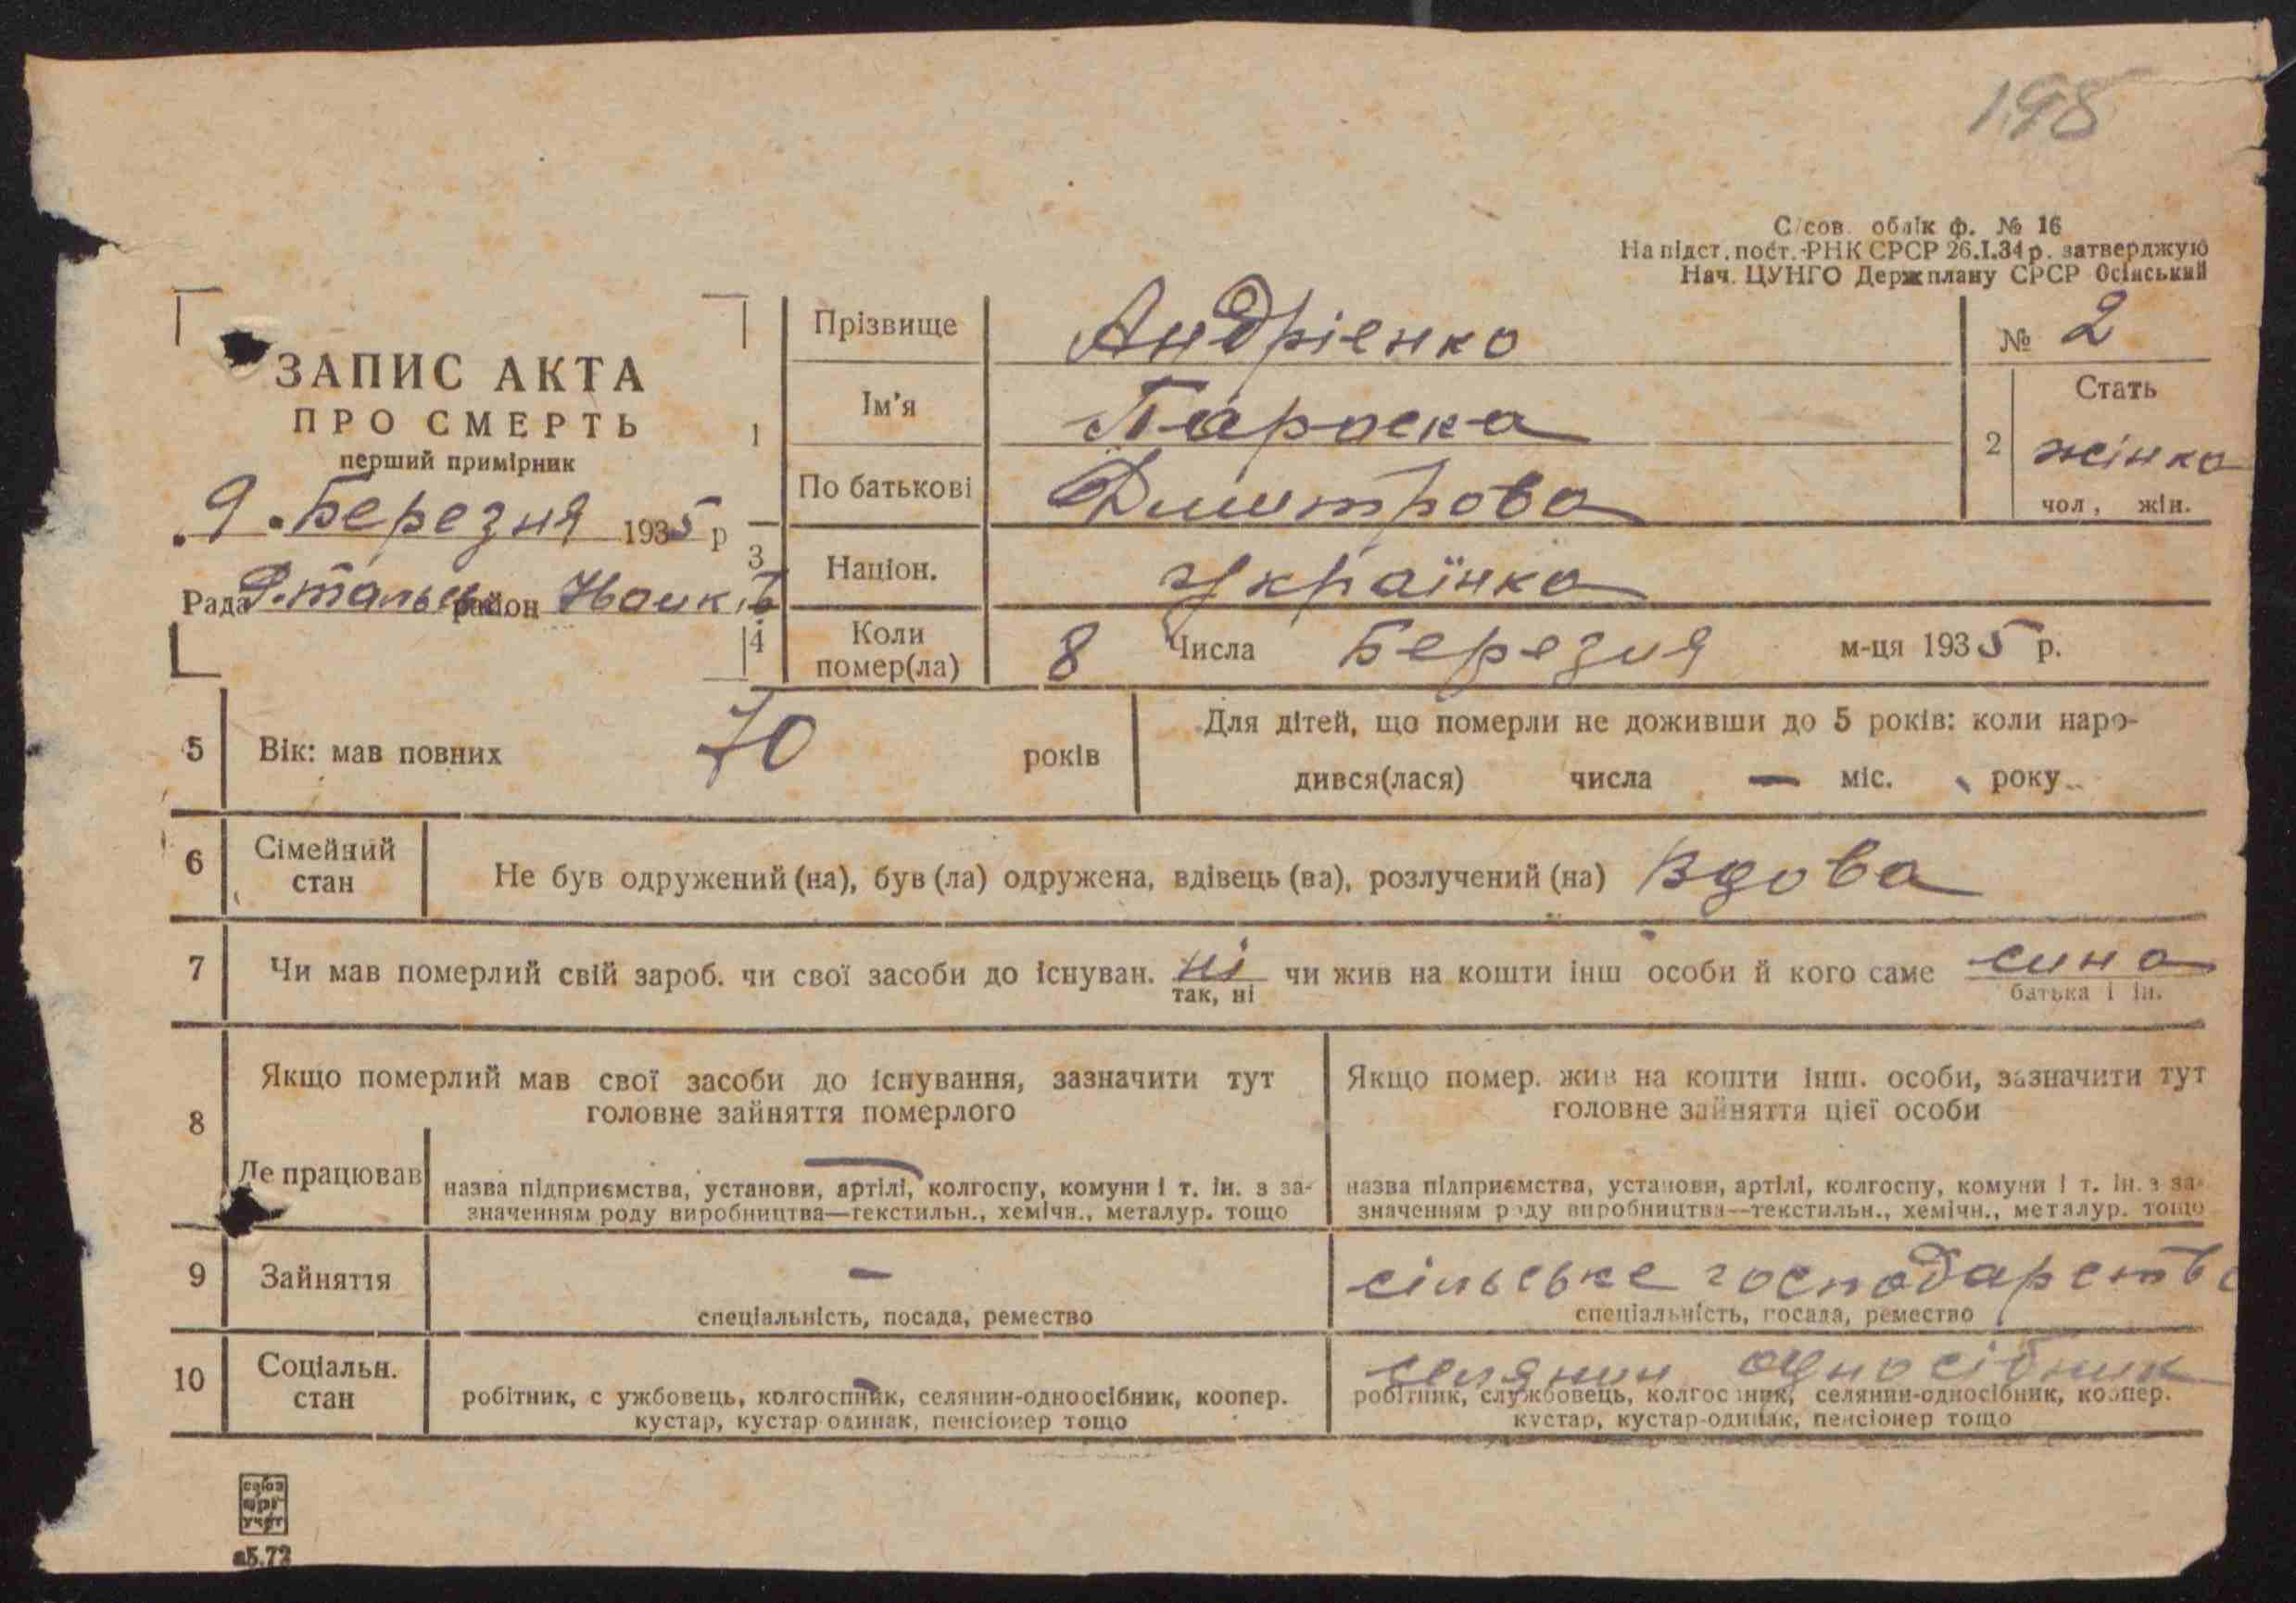 198
С/сов. облік ф. № 16
На підст. пост. РНК СРСР 26.I.34 р. затверджую
Нач. ЦУНГО Держплану СРСР Осінський
ЗАПИС АКТА
ПРО СМЕРТЬ
перший примірник
9. Березня 1935 р
Рада район
1 Прізвище Андріенко № 2
Ім'я Параска
По батькові Дмитрова
2 Стать жінка
чол, жін.
3 Націон. Українка
4 Коли помер(ла) 8 Числа Березня м-ця 1935 р.
5 Вік: мав повних 70 років
Для дітей, що померли не доживши до 5 років: коли наро-
дився(лася) числа — міс. року
6 Сімейний стан Не був одружений (на), був (ла) одружена, вдівець (ва), розлучений (на) Вдова
7 Чи мав померлий свій зароб. чи свої засоби до існуван. ні чи жив на кошти інш особи й кого саме сина
так, ні батька і ін.
8 Якщо померлий мав свої засоби до існування, зазначити тут
головне зайняття померлого
Якщо помер. жив на кошти інш. особи, зазначити тут
головне зайняття цієї особи
Де працював
назва підприємства, установи, артілі, колгоспу, комуни і т. ін. з за-
значенням роду виробництва—текстильн., хемічн., металур. тощо
назва підприємства, установи, артілі, колгоспу, комуни і т. ін. з за-
значенням роду виробництва—текстильн., хемічн., металур. тощо
9 Зайняття — сільське господарство
спеціальність, посада, ремество спеціальність, посада, ремество
10 Соціальн. стан
робітник, с ужбовець, колгоспник, селянин-одноосібник, коопер.
кустар, кустар одинак, пенсіонер тощо
селянин односібник
робітник, службовець, колгоспник, селянин-односібник, коопер.
кустар, кустар-одинак, пенсіонер тощо
союз
орг
учет